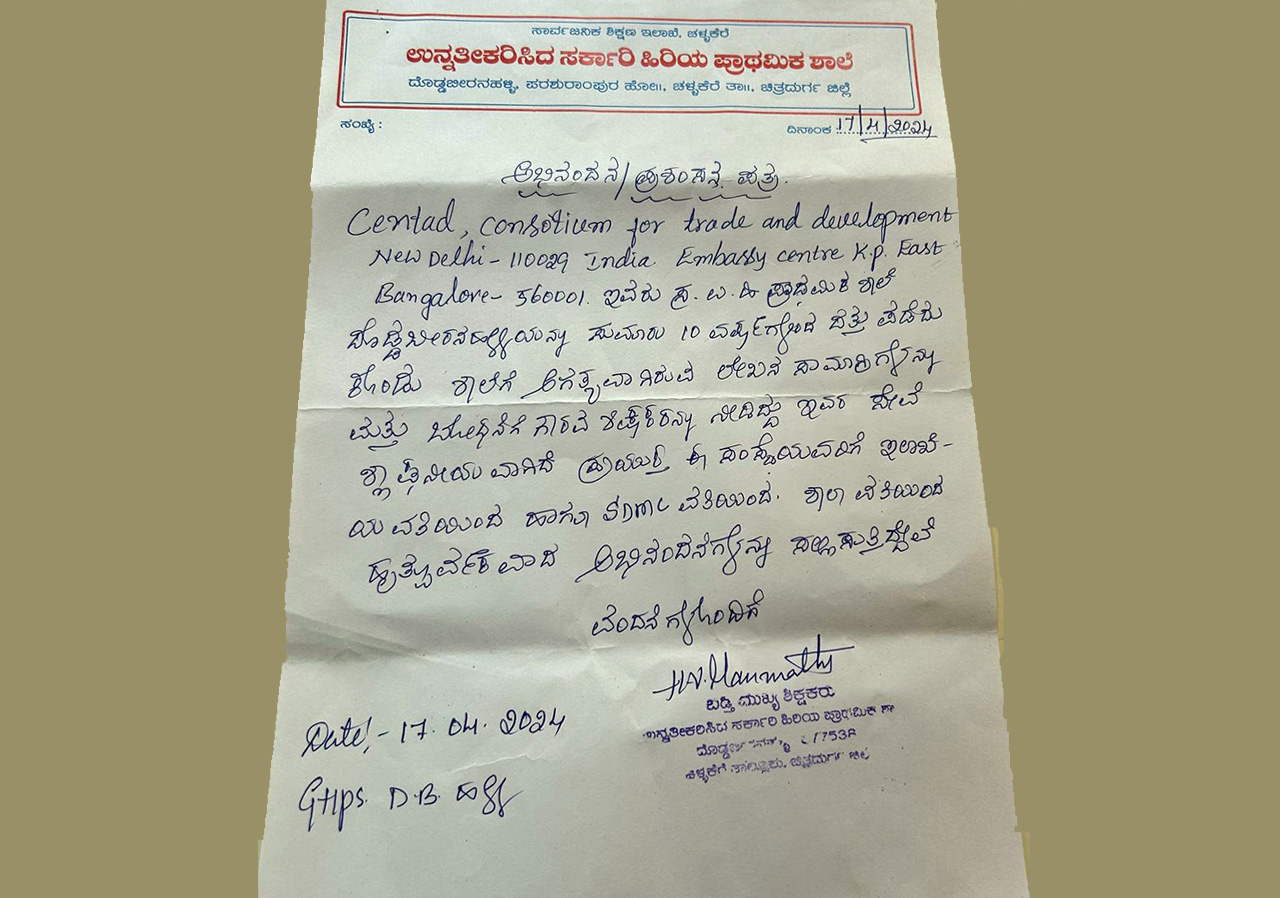 ಸಾರ್ವಜನಿಕ ಶಿಕ್ಷಣ ಇಲಾಖೆ, ಚಳ್ಳಕೆರೆ
ಉನ್ನತೀಕರಿಸಿದ ಸರ್ಕಾರಿ ಹಿರಿಯ ಪ್ರಾಥಮಿಕ ಶಾಲೆ
ದೊಡ್ಡಬೀರನಹಳ್ಳಿ, ಪರಶುರಾಂಪುರ ಹೋ॥, ಚಳ್ಳಕೆರೆ ತಾ॥, ಚಿತ್ರದುರ್ಗ ಜಿಲ್ಲೆ
ಸಂಖ್ಯೆ : ದಿನಾಂಕ 17/4/2024
ಅಭಿನಂದನ/ಪ್ರಶಂಸನ ಪತ್ರ.
Centad, consotium for trade and development
New Delhi - 110029 India. Embassy centre K.p. East
Bangalore - 560001. ಇವರು ಸ.ಉ.ಹಿ ಪ್ರಾಥಮಿಕ ಶಾಲೆ
ದೊಡ್ಡಬೀರನಹಳ್ಳಿಯನ್ನು ಸುಮಾರು 10 ವರ್ಷಗಳಿಂದ ದತ್ತು ಪಡೆದು
ಕೊಂಡು ಶಾಲೆಗೆ ಅಗತ್ಯವಾಗಿರುವ ಲೇಖನ ಸಾಮಾಗ್ರಿಗಳನ್ನು
ಮತ್ತು ಬೋಧನೆಗೆ ಗೌರವ ಶಿಕ್ಷಕರನ್ನು ನೀಡಿದ್ದು ಇವರ ಸೇವೆ
ಶ್ಲಾಘನೀಯವಾಗಿದೆ ಪ್ರಯುಕ್ತ ಈ ಸಂಸ್ಥೆಯವರಿಗೆ ಇಲಾಖೆ-
ಯ ವತಿಯಿಂದ ಹಾಗೂ SDMC ವತಿಯಿಂದ. ಶಾಲಾ ವತಿಯಿಂದ
ಹೃತ್ಪೂರ್ವಕವಾದ ಅಭಿನಂದನೆಗಳನ್ನು ಸಲ್ಲಿಸುತ್ತಿದ್ದೇವೆ
ವಂದನೆಗಳೊಂದಿಗೆ
ಬಡ್ತಿ ಮುಖ್ಯ ಶಿಕ್ಷಕರು
ಉನ್ನತೀಕರಿಸಿದ ಸರ್ಕಾರಿ ಹಿರಿಯ ಪ್ರಾಥಮಿಕ ಶಾ
ಚಳ್ಳಕೆರೆ ತಾಲ್ಲೂಕು, ಚಿತ್ರದುರ್ಗ ಜಿಲ್ಲೆ
Date:- 17. 04. 2024
GHps. D.B. ಹಳ್ಳಿ